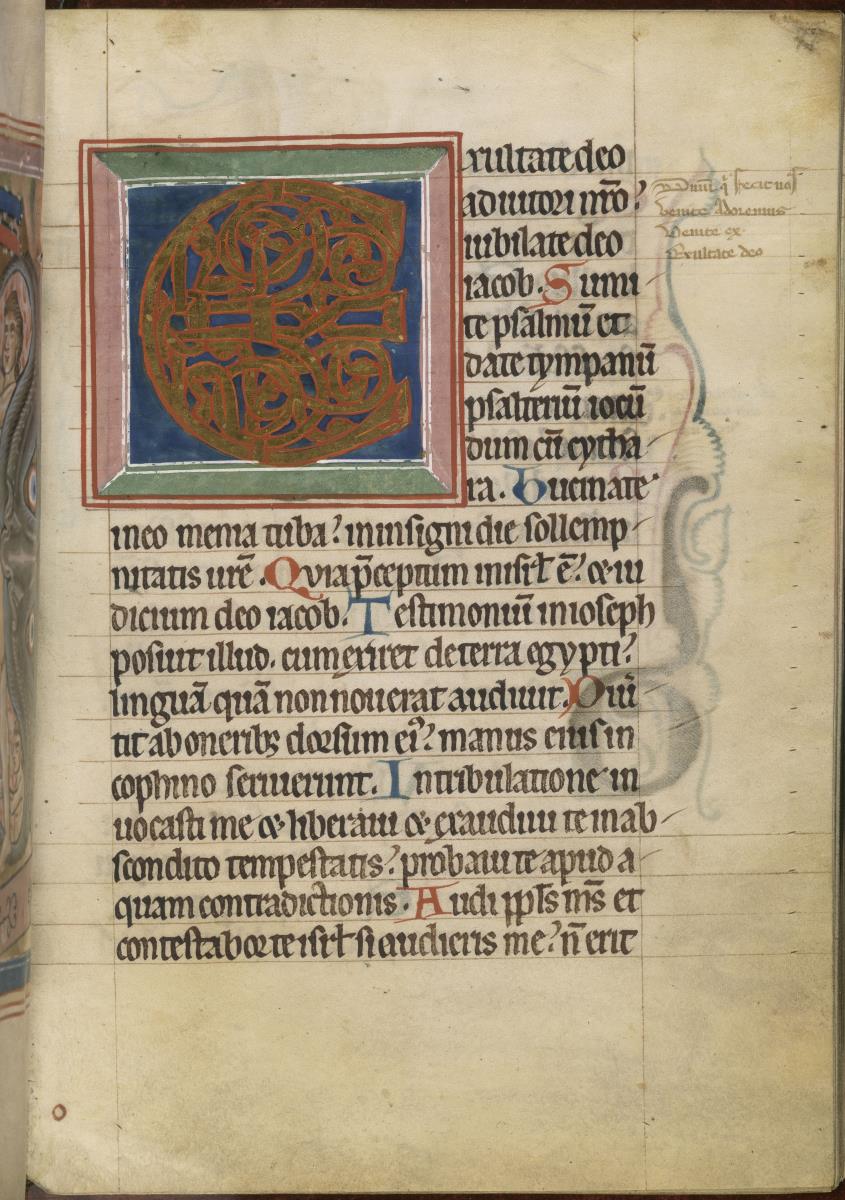 Exultate deo
adiutori nr̄o?
iubilate deo
iacob. Sumi
te psalmū et
date tympanū
psalteriū iocū
dum cū cytha
ra. Bucinate
in eo menia tuba? in insigni die sollemp
nitatis ur̄e. Quia p̄ceptum in isrl̄ ē? & iu
dicium deo iacob. Testimoniū in ioseph
posuit illud. cum exiret de terra egypti?
linguā quā non nouerat audiuit. Diui
tit ab onerib; dorsum ei? manus eius in
cophino seruierunt. In tribulatione in
uocasti me & liberaui & exaudiui te in ab
scondito tempestatis? probaui te apud a
quam contradictionis. Audi ppl̄s m̄s et
contestabor te isrl̄ si audieris me? n̄ erit
venite Adoremus
Venite ex
Exultate deo